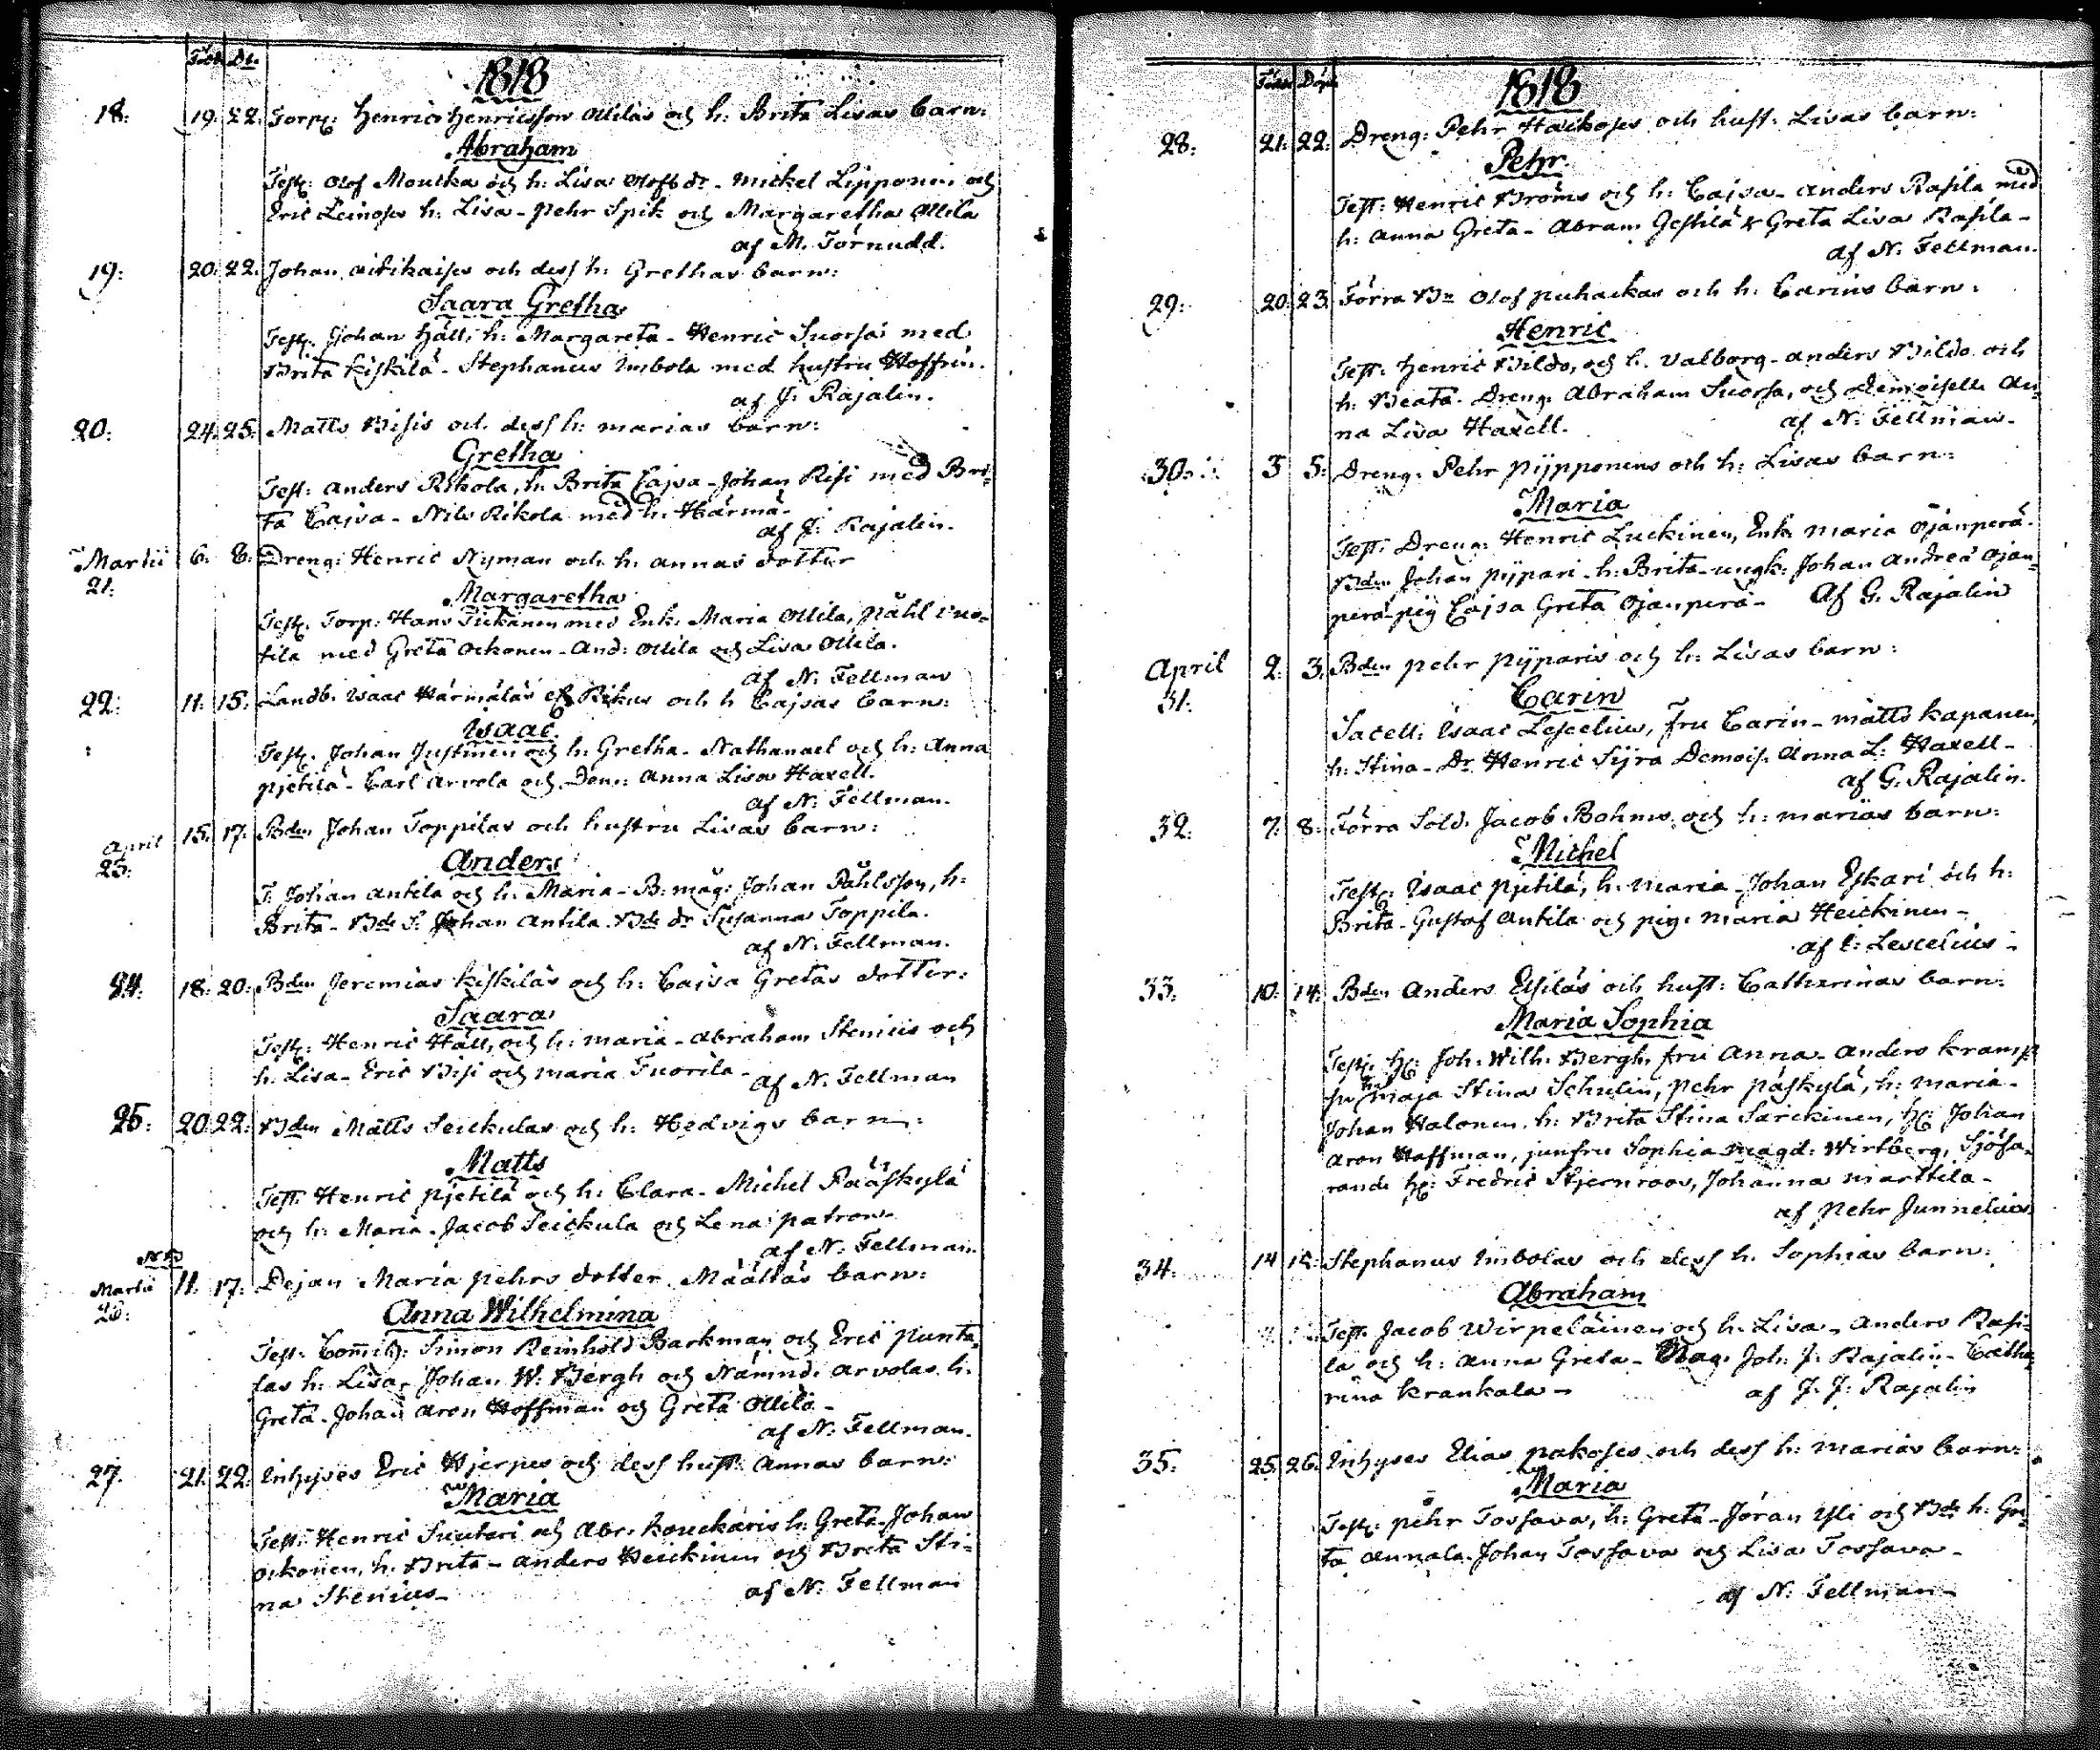 Född Dt.
1818
18: 19: 22: Torp: Henric Henricsson Ollilas och h: Brita Lisas barn:
Abraham
Test: Olof Moucka och h: Lisa Olofs dr - Mickel Lipponen och
Eric Leinoses h: Lisa - Pehr Spik och Margaretha Ollila
af M. Törnudd.
19: 20: 22: Johan och dess h: Grethas barn:
Saara Gretha
Test: Johan Häll, h: Margareta - Henric Suorsa med
Brita Kiskilä - Stephanus Imbola med hustru Hoffrén.
af J: Rajalin.
20: 24: 25: Matts Bisis och dess h: Marias barn:
Gretha
Test: Anders Rikola, h: Brita Cajsa - Johan Risi med Bri-
ta Cajsa - Nils Rikola med h: Härmä -
af J: Rajalin.
Martii
21: 6: 8: Dreng: Henric Nyman och h: Annas dotter
Margaretha
Test: Torp: Hans Piikänen med Enk: Maria Ollila, Påhl
tila med Greta Ockonen - And: Ollila och Lisa Ollila.
af N: Fellman
22: 11: 15: Landb. Isaac Härmäläs Rikus och h Cajsas barn:
Isaac
Test: Johan Justinen och h: Gretha - Nathanael och h: Anna
Pjetilä - Carl Arvola och Dem: Anna Lisa Haxell.
af N: Fellman.
April
23: 15: 17: Bden Johan Toppilas och hustru Lisas barn:
Anders
T. Johan Antila och h: Maria - B: måg: Johan Påhlsson, h:
Brita - Bds S: Johan Antila Bds dr Susanna Toppila.
af N: Fellman.
24: 18: 20: Bden Jeremias Kiskiläs och h: Cajsa Gretas dotter:
Saara
Test: Henric Häll, och h: Maria - Abraham Stenius och
h: Lisa - Eric Bisi och Maria Tuorila -
af N: Fellman
25: 20: 22: Bden Matts Seickulas och h: Hedvigs barn:
Matts
Test: Henric Pjetilä och h: Clara - Michel Pääskylä
och h: Maria - Jacob Seickula och Lena Patron -
af N: Fellman.
NB
Martii
26: 11: 17: Dejan Maria Pehrs dotter Määttäs barn:
Anna Wilhelmina
Test: Com̄ih: Simon Reinhold Barkman och Eric Punta-
las h: Lisa - Johan W: Bergh och Nämnd: Arvolas h:
Greta - Johan Aron Hoffman och Greta Ollila -
af N: Fellman.
27. 21: 22: Inhyses Eric Hjerpes och dess hust: Annas barn:
Maria
Test: Henric Suutari och Abr: Kouckaris h: Greta - Johan
Ockonen, h: Brita - Anders Heickinen och Brita Sti-
na Stenius -
af N: Fellman
Född Döpt
1818
28: 21: 22: Dreng: Pehr Haikoses och hust: Lisas barn:
Pehr
Test: Henric Bröms och h: Cajsa - Anders Rasila med
h: Anna Greta - Abram Jestilä & Greta Lisa Rasila -
af N: Fellman.
29: 20: 23: Förra Bn Olof Puhackas och h: Carins barn:
Henric
Test: Henric Bildo, och h. Valborg - Anders Bildo och
h: Beata - Dreng Abraham Suorsa, och Demoiselle An-
na Lisa Haxell.
af N: Fellman.
30: 3 5: Dreng: Pehr Pijpponens och h: Lisas barn:
Maria
Test: Dreng: Henric Luckinen, Enk: Maria Ojanperä -
Bden Johan Pijpari - h: Brita - ungk: Johan Andreä Ojan-
perä - pig Cajsa Greta Ojanperä -
Af G. Rajalin
April
31: 2: 3: Bden Pehr Pijparis och h: Lisas barn:
Carin
Sacell: Isaac Lescelius, fru Carin - Matts Kapanen,
h: Stina - Dr Henric Sijra Demois. Anna L: Haxell -
af G. Rajalin.
32: 7: 8: Förra Sold. Jacob Bohms och h: Marias barn:
Michel
Test: Isaac Pjetilä, h: Maria - Johan Eskari och h:
Brita - Gustaf Antila och pig: Maria Heickinen -
af I: Lescelius -
33: 10: 14: Bden Anders Elsiläs och hust: Catharinas barn:
Maria Sophia
Test: Hr: Joh: Wilh: Bergh, fru Anna - Anders Kramp
Maja Stina Schulin, Pehr Päskylä, h: Maria -
Johan Halonen, h: Brita Stina Sarckinen, Hr: Johan
Aron Hoffman, junfru Sophia Magd: Wirtberg, Sjöfa-
rande Hr: Fredric Stjernroos, Johanna Marttila -
af Pehr Junnelius
34: 14 15: Stephanus Imbolas och dess h: Sophias barn:
Abraham
Test: Jacob Wirpeläinen och h: Lisa - Anders Rasi-
la och h: Anna Greta - Mag: Joh: J: Rajalin - Catha-
rina Krankala -
af J. J: Rajalin
35: 25: 26: Inhyses Elias Pakoses och dess h: Marias barn:
Maria
Test: Pehr Tossava, h: Greta - Jöran Yli och Bds h: Gre-
ta Annala - Johan Tossava och Lisa Tossava -
af N: Fellman -